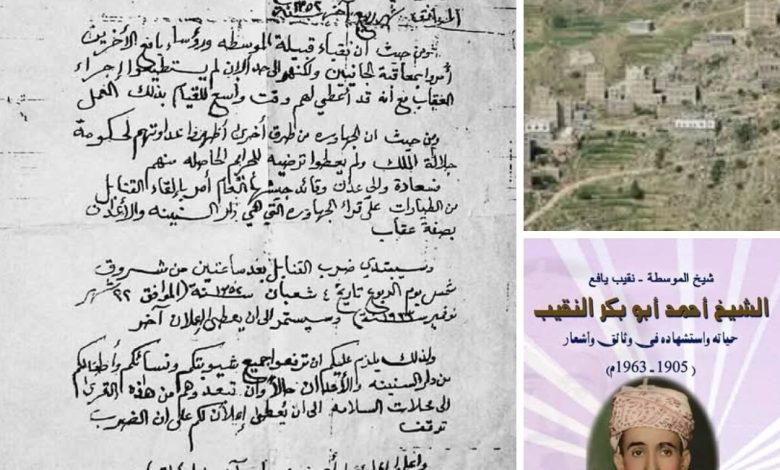 الموافق شهر ربيع آخر سنة ١٣٥٢
ومن حيث أن نقباء قبيلة الموسطه ورؤساء يافع الآخرين
أمروا بمعاقبة الجانيين ولكنهم الى حد الان لم يستطيعوا إجراء
العقاب مع أنه قد أعطي لهم وقت واسع للقيام بذلك العمل
ومن حيث ان الجهاوره من طرف أخرى أظهروا عداوتهم لحكومة
جلالة الملك ولم يعطوا ترضيه للجرايم الحاصله منهم
فسعادة والى عدن وقائد جيشها العام أمر بإلقاء القنابل
من الطيارات على قراء الجهاوره التي هي دار السنينه والأغدان
بصفة عقاب
وسيبتدي ضرب القنابل بعد ساعتين من شروق
شمس يوم الربوع تاريخ ٤ شعبان سنة ١٣٥٢ (الموافق ٢٢ شهر
نوفمبر سنة ١٩٣٣) وسيستمر الى ان يعطى إعلان آخر
ولذلك يلزم عليكم ان ترفعوا جميع شيوبتكم ونسائكم وأطفالكم
من دار السنينه حالاً وان تبعدوهم من هذه القرى
الى محلات السلامه الى ان يُعطى إعلان لكم على ان الضرب
توقف
شيخ الموسطة - نقيب يافع
الشيخ أحمد أبو بكر النقيب
حياته واستشهاده في وثائق وأشعار
(1905 - 1963م)